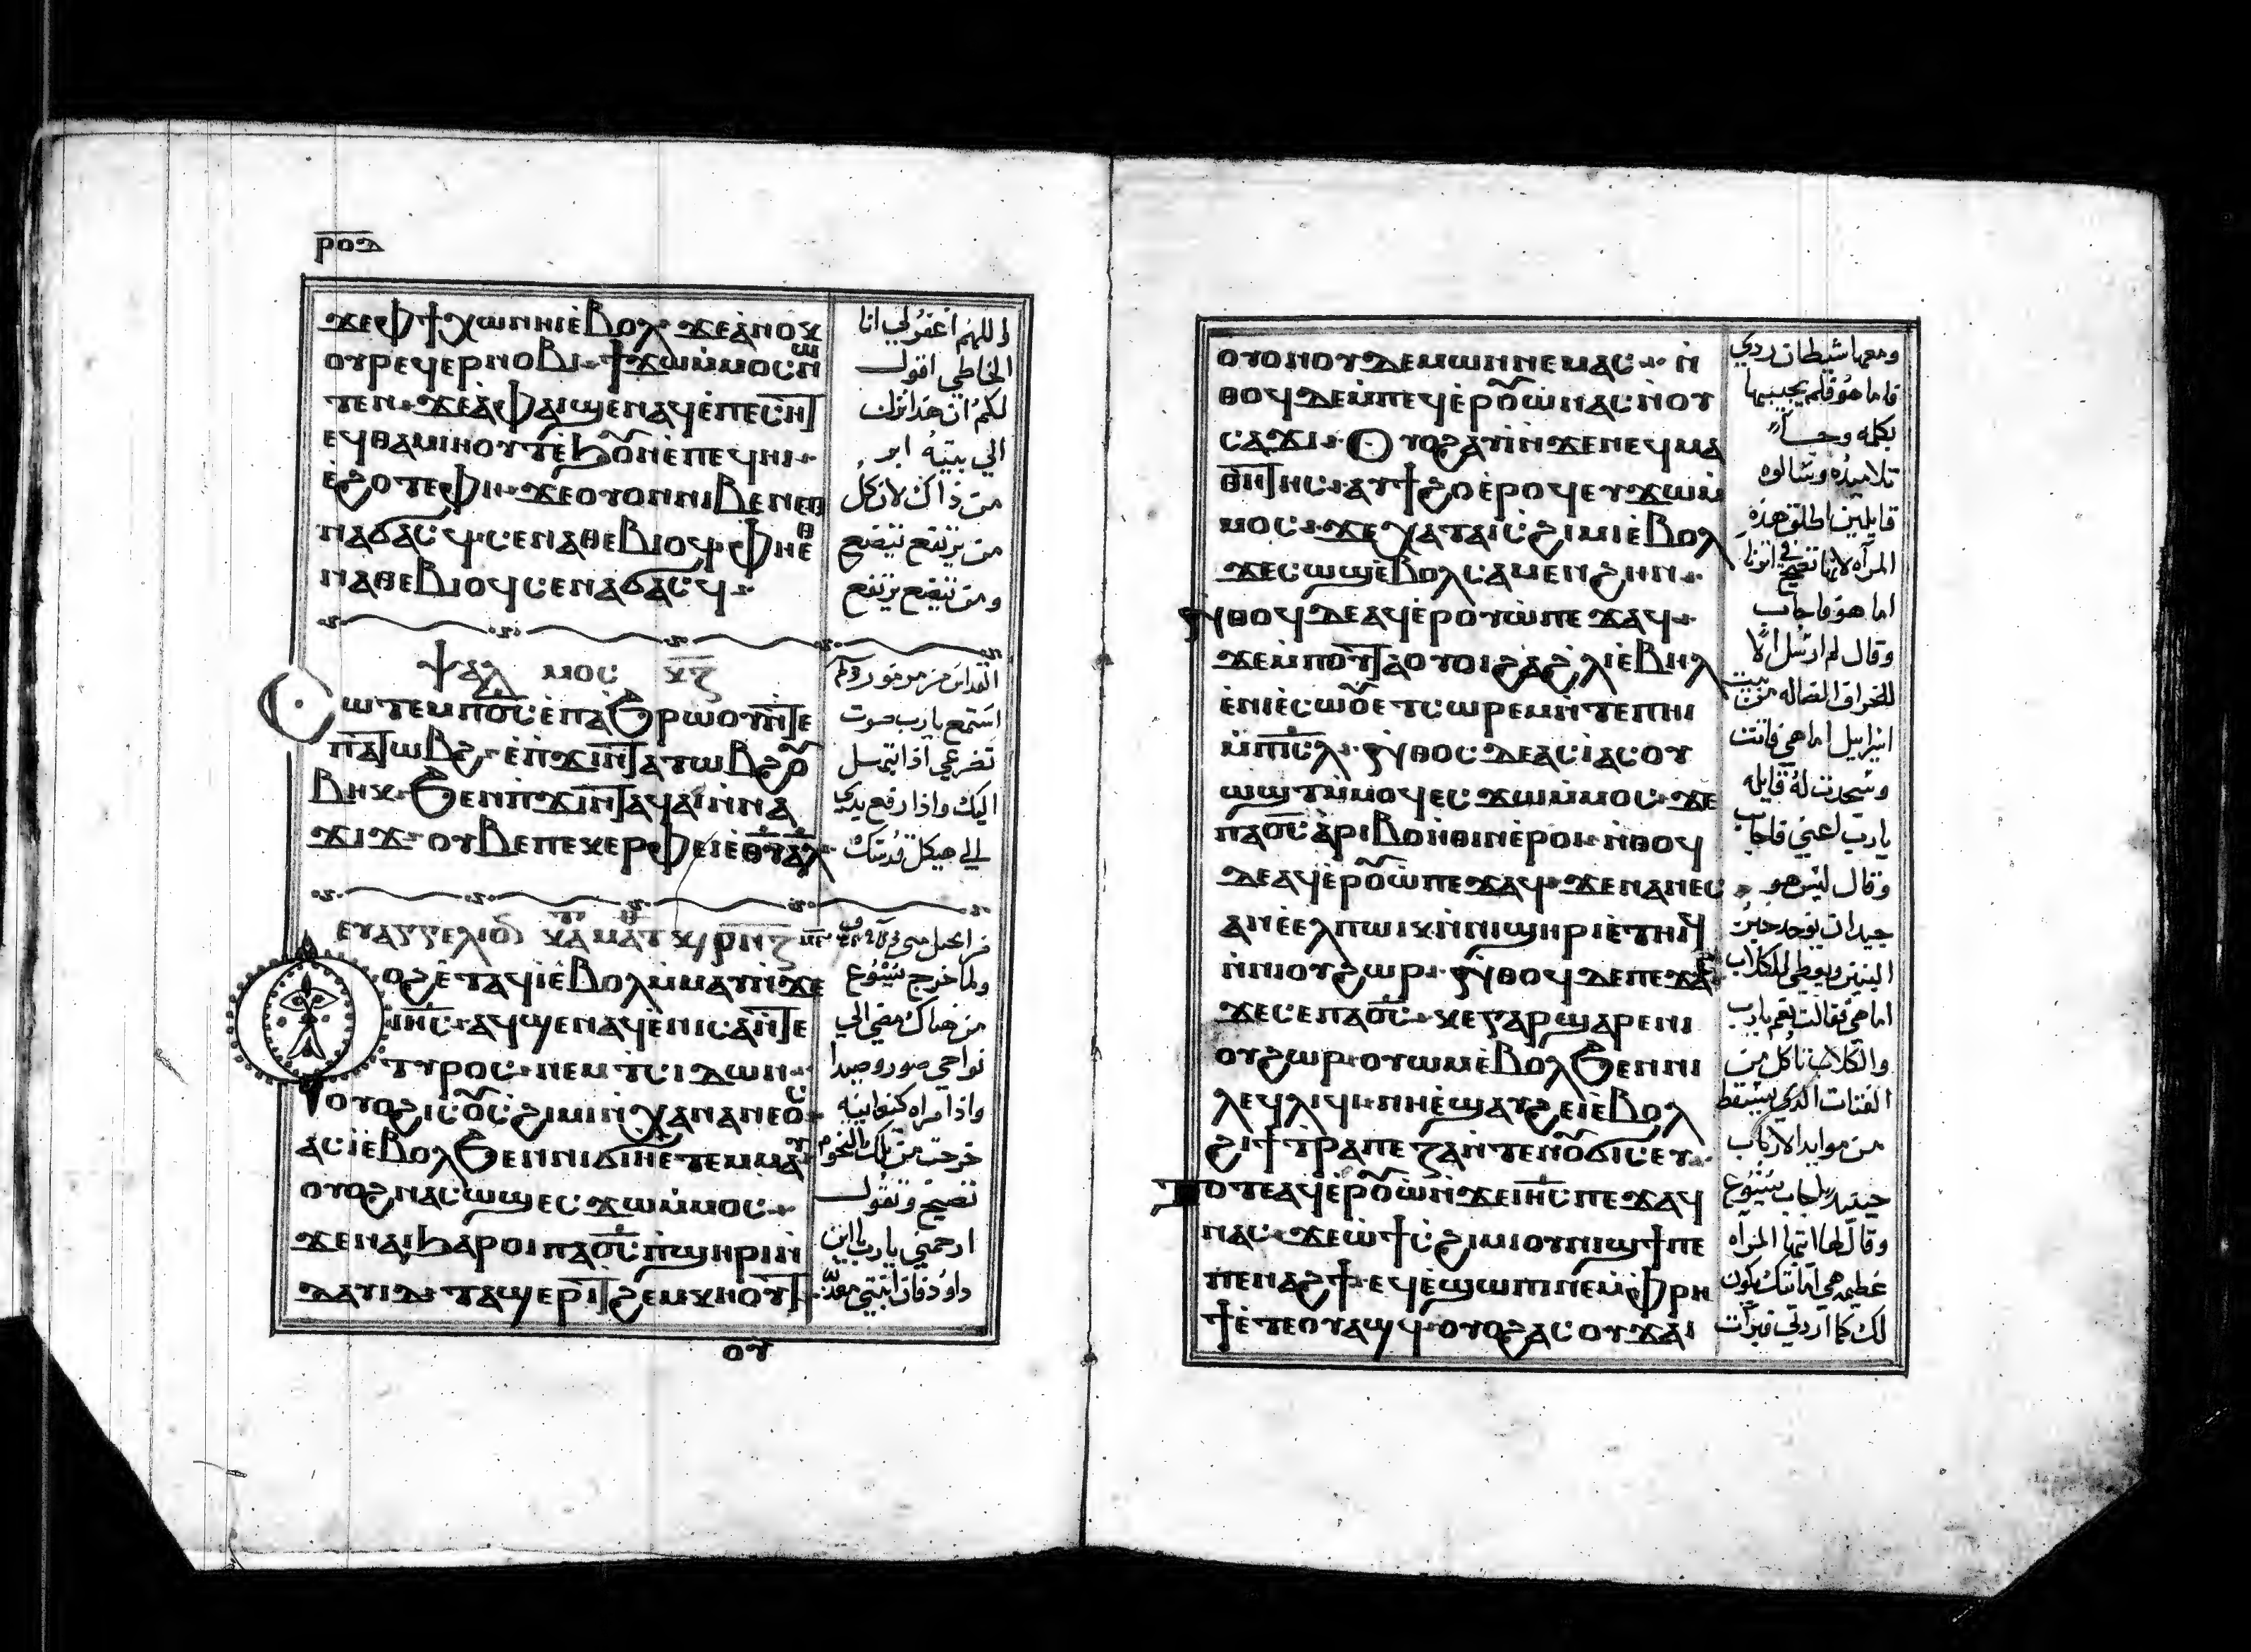 ⲣⲟⲇ
ϫⲉⲫϯⲭⲱⲛⲏⲓⲉ̀ⲃⲟⲗ ϫⲉⲁ̀ⲛⲟⲕ
ⲟⲩⲣⲉϥⲉⲣⲛⲟⲃⲓ ϯϫⲱⲙ̀ⲙⲟⲥⲛ̀ⲱ
ⲧⲉⲛ ϫⲉⲁ̀ⲫⲁⲓϣⲉⲛⲁϥⲉ̀ⲡⲉⲥⲏⲧ
ⲉϥⲑⲁⲙⲓⲏⲟⲩⲧⲉ̀ϧⲟⲛⲉ̀ⲡⲉϥⲏⲓ
ⲉ̀ϩⲟⲧⲉⲫⲏ ϫⲉⲟⲩⲟⲛⲛⲓⲃⲉⲛⲉⲑ
ⲛⲁϭⲁⲥϥ ⲥⲉⲛⲁⲑⲉⲃⲓⲟϥ ⲫⲏⲉ̀ⲑ
ⲛⲁⲑⲉⲃⲓⲟϥⲥⲉⲛⲁϭⲁⲥϥ
واللهم اغفر لي انا
الخاطي اقول
لكم ان هذا نزل
الي بيته ابر
من ذاك لان كل
من يرتفع يتضع
ومن يتضع يرتفع
ⲯⲁⲗⲙⲟⲥ ⲕⲍ
ⲥⲱⲧⲉⲙⲡⲟ̅ⲥ̅ⲉ̀ⲡⲁϧⲣⲱⲟⲩⲛ̀ⲧⲉ
ⲡⲁⲧⲱⲃϩ ⲉ̀ⲡ̀ϫⲓⲛⲧⲁⲧⲱⲃϩⲟ
ⲃⲏⲕ ϧⲉⲛⲡ̀ϫⲓⲛⲧⲁϥⲁⲓⲛ̀ⲛⲁ
ϫⲓϫ ⲟⲩⲃⲉⲡⲉⲕⲉⲣⲫⲉⲓⲉ̀ⲑⲩⲁⲗ
استمع يارب صوت
تضرعي اذا ابتهل
اليك واذا رفع يدي
الي هيكل قدسك
ⲉⲩⲁⲅⲅⲉⲗⲓⲟⲛ ⲕⲁ ⲙⲁⲧ
ⲟϩⲉ̀ⲧⲁϥⲓ̀ⲉ̀ⲃⲟⲗⲙ̀ⲙⲁⲩⲛ̀ϫⲉ
ⲓⲏ̅ⲥ̅ ⲁϥϣⲉⲛⲁϥⲉ̀ⲛⲓⲥⲁⲛ̀ⲧⲉ
ⲧⲩⲣⲟⲥ ⲛⲉⲙⲧⲥⲓⲇⲱⲛ
ⲟⲩⲟϩⲓⲥⲟⲥ̀ϩⲓⲙⲓⲛ̀ⲭⲁⲛⲁⲛⲉⲟⲥ
ⲁⲥⲓ̀ⲉ̀ⲃⲟⲗϧⲉⲛⲛⲓϭⲓⲏⲉ̀ⲧⲉⲙⲙⲁⲩ
ⲟⲩⲟϩⲛⲁⲥⲱϣⲉⲥϫⲱⲙ̀ⲙⲟⲥ
ϫⲉⲛⲁⲓϧⲁⲣⲟⲓⲡⲁⲟ̅ⲥ̅ⲡ̀ϣⲏⲣⲓⲛ̀
ⲇⲁⲩⲓⲇ ⲧⲁϣⲉⲣⲓⲧϩⲉⲙⲕⲏⲟⲩⲧ
ولما خرج يسوع
من هناك مضي الي
نواحي صور وصيدا
واذا امراه كنعانيه
خرجت من تلك التخوم
تصيح وتقول
ارحمني يارب يا ابن
داود فان ابنتي معذبه
ⲟⲩ
ⲟⲩⲟⲛⲟⲩⲇⲉⲙⲱⲛⲛⲉⲙⲁⲥ ⲛ̀
ⲑⲟϥⲇⲉⲙ̀ⲡⲉϥⲉ̀ⲣⲟⲱ̀ⲛⲁⲥⲛ̀ⲟⲩ
ⲥⲁϫⲓ ⲟⲩⲟϩⲁⲩⲓ̀ⲛ̀ϫⲉⲛⲉϥⲙⲁ
ⲑⲏⲧⲏⲥ ⲁⲩϯϩⲟⲉ̀ⲣⲟϥⲉⲩϫⲱⲙ̀
ⲙⲟⲥ ϫⲉⲭⲁⲧⲁⲓⲥ̀ϩⲓⲙⲓⲉ̀ⲃⲟⲗ
ϫⲉⲥⲱϣⲉ̀ⲃⲟⲗⲥⲁⲙⲉⲛϩⲏⲛ
ⲛ̀ⲑⲟϥⲇⲉⲁϥⲉ̀ⲣⲟⲩⲱ̀ⲡⲉϫⲁϥ
ϫⲉⲙ̀ⲡⲟⲩⲧⲁⲟⲩⲟⲓϩⲁϩⲗⲓⲉ̀ⲃⲏⲗ
ⲉ̀ⲛⲓⲉ̀ⲥⲱⲟⲩⲉⲧⲥⲱⲣⲉⲙⲛ̀ⲧⲉⲡⲏⲓ
ⲙ̀ⲡⲓ̅ⲥ̅ⲗ̅ ⲛ̀ⲑⲟⲥⲇⲉⲁⲥⲓ̀ⲁⲥⲟⲩ
ⲱϣⲧⲙ̀ⲙⲟϥⲉⲥϫⲱⲙ̀ⲙⲟⲥ ϫⲉ
ⲡⲁⲟ̅ⲥ̅ⲁ̀ⲣⲓⲃⲟⲏ̀ⲑⲓⲛⲉ̀ⲣⲟⲓ ⲛ̀ⲑⲟϥ
ⲇⲉⲁϥⲉ̀ⲣⲟⲱ̀ⲡⲉϫⲁϥ ϫⲉⲛⲁⲛⲉⲥ
ⲁⲛⲉ̀ⲉⲗⲡⲱⲓⲕⲛ̀ⲛⲓϣⲏⲣⲓⲉ̀ⲧⲏⲓϥ
ⲛ̀ⲛⲓⲟⲩϩⲱⲣ ⲛ̀ⲑⲟϥⲇⲉⲡⲉϫⲁⲥ
ϫⲉⲥⲉⲡⲁⲟ̅ⲥ̅ ⲕⲉⲅⲁⲣϣⲁⲣⲉⲛⲓ
ⲟⲩϩⲱⲣ ⲟⲩⲱⲙⲉ̀ⲃⲟⲗϧⲉⲛⲛⲓ
ⲗⲉϥⲗⲓϥⲓ ⲛⲏⲉ̀ϣⲁⲩϩⲉⲓⲉ̀ⲃⲟⲗ
ϩⲓϯⲧⲣⲁⲡⲉⲍⲁⲛ̀ⲧⲉⲛⲟϭⲓⲥⲉⲩ
ⲧⲟⲧⲉⲁϥⲉ̀ⲣⲟⲱ̀ⲛ̀ϫⲉⲓⲏ̅ⲥ̅ⲡⲉϫⲁϥ
ⲛⲁⲥ ϫⲉⲱ̀ϯⲥ̀ϩⲓⲙⲓⲟⲩⲛⲓϣϯⲡⲉ
ⲡⲉⲛⲁϩϯ ⲉϥⲉ̀ϣⲱⲡⲓⲛⲉⲙ̀ⲫⲣⲏ
ϯⲉ̀ⲧⲉⲟⲩⲁϣϥ ⲟⲩⲟϩⲁⲥⲟⲩϫⲁⲓ
ومعها شيطان ردي
فاما هو فلم يجيبها
بكلمه وجا
تلاميذه وسالوه
قايلين اطلق هذه
المراه لانها تصيح في اثرنا
اما هو فاجاب
وقال لم ارسل الا
للخراف الضاله من بيت
اسراييل اما هي فاتت
وسجدت له قايله
يارب اعني فاجاب
وقال ليس هو
جيدا ان يوخد خبز
البنين ويعطي للكلاب
اما هي فقالت نعم يارب
والكلاب تاكل من
الفتات الذي يسقط
من موايد الارباب
حينيد اجاب يسوع
وقال لها ايتها المراه
عظيمه هي امانتك يكون
لك كما اردتي فبرات